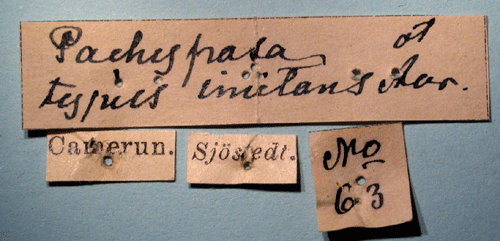 Pachyprasa et
typus imitans Aur.
Camerun.
Sjöstedt.
No
63